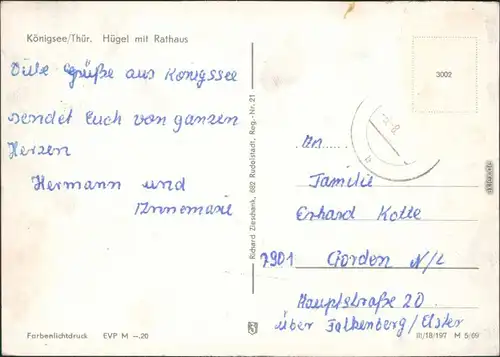 Königsee/Thür. Hügel mit Rathaus
Viele Grüße aus Königssee
sendet Euch von ganzen
Herzen
Hermann und
Annemarie
Richard Zieschank, 682 Rudolstadt, Reg.-Nr. 21
3002
An
Familie
Erhard Kotte
7901 Gorden N/L
Hauptstraße 20
über Falkenberg/Elster
Farbenlichtdruck EVP M –.20
III/18/197 M 5/69